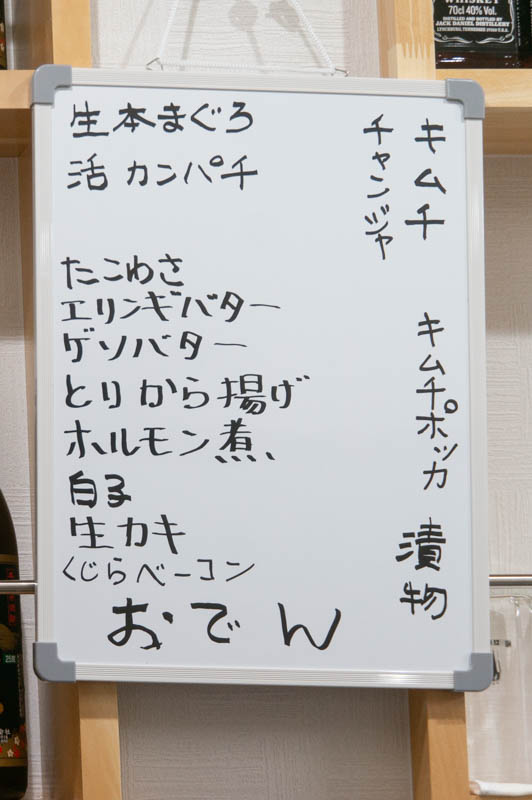 WHISKEY
70cl 40% Vol.
DISTILLED AND BOTTLED BY
JACK DANIEL DISTILLERY
LYNCHBURG, TENNESSEE
生本まぐろ
活カンパチ
たこわさ
エリンギバター
ゲソバター
とりから揚げ
ホルモン煮
白子
生カキ
くじらベーコン
おでん
キムチ
チャンジャ
キムチポッカ
漬物